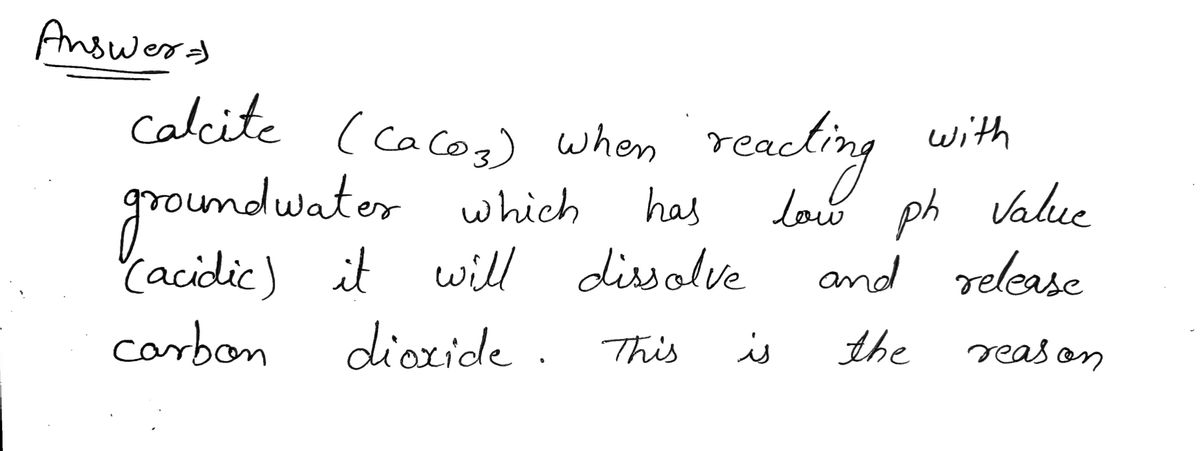 Answer⇒
calcite (CaCO3) when reacting with
groundwater which has low ph value
(acidic) it will dissolve and release
carbon dioxide. This is the reason